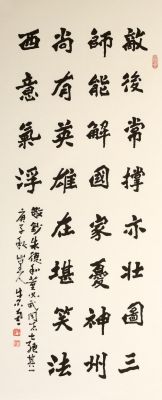 敵後常撐亦壯圖三
師能解國家憂神州
尚有英雄在堪笑法
西意氣浮
敬鈔朱德和董必武同志七絕其一
庚子秋